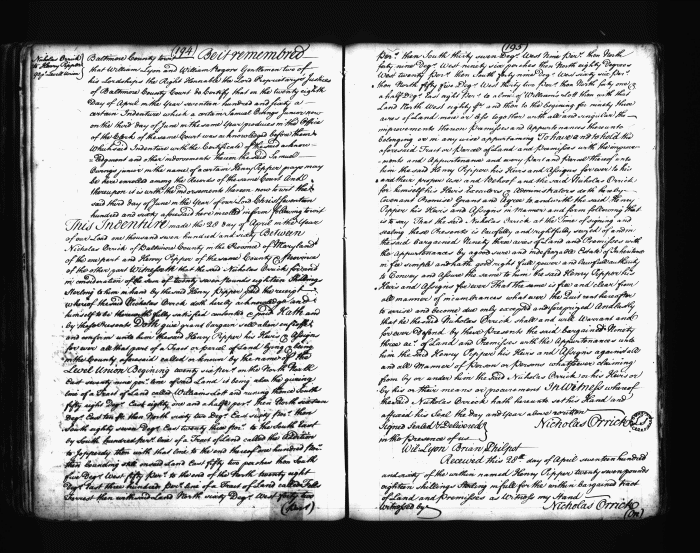 (194)
Nicholas Orrick
to Henry Pepper
Baltimore County to wit Be it remembered
that William Lyon and William Rogers Gentlemen two of
his Lordships the Right Honorable the Lord Proprietarys Justices
of Baltimore County Court do Certify that on the twenty eighth
Day of April in the Year seventeen hundred and sixty a
certain Indenture which a certain Samuel Owings junior now
on the third day of June in the same Year produces in the Office
of the Clerk of the same Court was acknowledged before them
Which said Indenture with the Certificate of the said acknow-
ledgment and other indorsements thereon the said Samuel
Owings junior in the name of a certain Henry Pepper prays may
be here enrolled among the Records of the same Court And
thereupon it is with the indorsements thereon now to wit that
said third day of June in the Year of our Lord Christ seventeen
hundred and sixty aforesaid here inrolled in form following to wit
This Indenture made the 28 day of April in the Year
of our Lord one thousand seven hundred and sixty Between
Nicholas Orrick of Baltimore County in the Province of Maryland
of the one part and Henry Pepper of the same County & Province
of the other part Witnesseth that the said Nicholas Orrick for and
in consideration of the sum of twenty seven pounds eighteen shillings
Sterling to him in hand by the said Henry Pepper paid the receipt
whereof the said Nicholas Orrick doth hereby acknowledge and
himself to be therewith fully satisfied contented Hath and
by these Presents Doth give grant bargain sell alien enfeoff
and confirm unto him the said Henry Pepper his Heirs & Assigns
for ever all that part of a Tract or parcel of Land lying & being
in the County aforesaid called or known by the name of the
Level Union Begining twenty six pers. in the North North
East seventy one pers. line of said Land it being also the begining
line of a Tract of Land called Williams Lott and runing thence South
fifty eight Degs. East eighty one and a half pers. then North sixteen
Degs. East ten ps. then North ninety two Degs. East sixty ps. then
South eighty seven Degs. East twenty three ps. to the South East
by South hundred pers. line of a Tract of Land called the Addition
to Jopperdy then with that line to the end thereof one hundred pers.
then bounding still on said Land fifty two perches then South
five Degs. West fifty pers. to the end of the North twenty eight
Degs. East three hundred pers. line of a Tract of Land called Tals
Forrest then with said Land North ninety Degs. West forty two
(pers.)
(195)
pers. then South thirty seven Degs. West nine pers. then North
forty nine Degs. West ninety six perches then North eighty Degrees
West twenty pers. then South forty nine Degs. West sixty six pers.
then North fifty five Degs. West thirty two pers. then North forty one &
a half Degs. East eight pers. to a line of Williams Lott then with this
Land North West eighty ps. and then to the begining for ninety three
acres of Land more or less together with all and singular the
improvements thereon Premisses and Appurtenances thereunto
belonging or in any wise appertaining To have and to hold the
aforesaid Tract or Parcel of Land and Premisses with the improve-
ments and Appurtenances and every part and parcel thereof unto
him the said Henry Pepper his Heirs and Assigns forever to his
and their proper use and Behoof and the said Nicholas Orrick
for himself his Heirs Executors & Administrators doth hereby
Covenant Promise Grant and Agree to and with the said Henry
Pepper his Heirs and Assigns in Manner and form following that
is to say That the said Nicholas Orrick at the Time of signing and
sealing these Presents is lawfully and rightfully seized of and in
the said Bargained Ninety three acres of Land and Premisses with
the Appurtenances by a good sure and indefeazable Estate of inheritance
in fee simple and hath good right full power and lawful authority
to Convey and Assure the same to him the said Henry Pepper his
Heirs and Assigns for ever That the same is free and clear from
all manner of incumbrances whatsoever the Quit rent hereafter
to arise and become due only excepted and foreprized And lastly
that he the said Nicholas Orrick shall and will Warrant and
for ever Defend by these Presents the said bargained Ninety
three as. of Land and Premisses with the Appurtenances unto
him the said Henry Pepper his Heirs and Assigns against all
and all Manner of Person or Persons whatsoever claiming
from by or under him the said Nicholas Orrick or his Heirs or
by his or their means or procurement In Witness whereof
the said Nicholas Orrick hath hereunto set his Hand and
affixed his Seal the day and Year above written
Signed Sealed & Delivered
Nicholas Orrick
in the presence of us
Wm Lyon Brian Philpot
Received this 28th day of April seventeen hundred
and sixty of the within named Henry Pepper twenty seven pounds
eighteen shillings Sterling in full for the within bargained tract
of Land and Premisses as Witness my Hand
Witnessed by
Nicholas Orrick